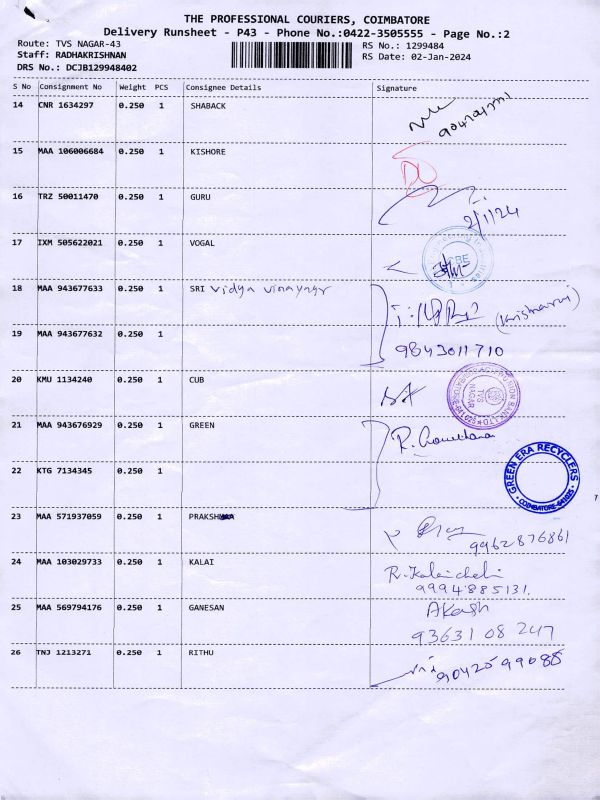 THE PROFESSIONAL COURIERS, COIMBATORE
Delivery Runsheet - P43 - Phone No.:0422-3505555 - Page No.:2
Route: TVS NAGAR-43
RS No.: 1299484
Staff: RADHAKRISHNAN
RS Date: 02-Jan-2024
DRS No.: DCJB129948402
S No Consignment No Weight PCS Consignee Details Signature
14 CNR 1634297 0.250 1 SHABACK
15 MAA 106006684 0.250 1 KISHORE
16 TRZ 50011470 0.250 1 GURU
2/1/24
17 IXM 505622021 0.250 1 VOGAL
18 MAA 943677633 0.250 1 SRI Vidya Vinayagr
19 MAA 943677632 0.250 1
9843011710
20 KMU 1134240 0.250 1 CUB
TVS NAGAR
21 MAA 943676929 0.250 1 GREEN
GREEN ERA RECYCLERS
COIMBATORE-641025
22 KTG 7134345 0.250 1
23 MAA 571937059 0.250 1 PRAKSH
9962876861
24 MAA 103029733 0.250 1 KALAI
R. Kalaichelvi
9994885131.
25 MAA 569794176 0.250 1 GANESAN Akash
93631 08 247
26 TNJ 1213271 0.250 1 RITHU
9042599088